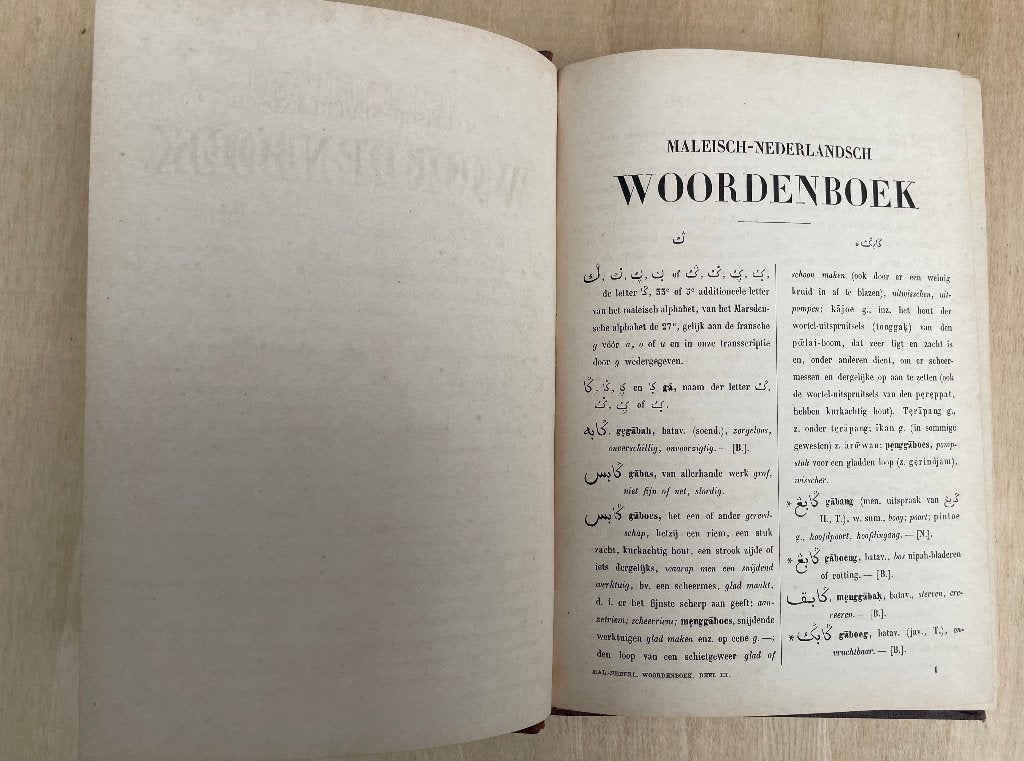 MALEISCH-NEDERLANDSCH
WOORDENBOEK
ݢ
de letter ݢ, 33e of 3e additioneele letter
van het maleisch alphabet, van het Marsden-
sche alphabet de 27e, gelijk aan de fransche
g vóór a, o of u en in onze transscriptie
door g wedergegeven.
en gā, naam der letter
of
ݢابه, gęgābah, batav. (soend.), zorgeloos,
onverschillig, onvoorzigtig. — [B.].
ݢابس gābas, van allerhande werk grof,
niet fijn of net, slordig.
ݢابس gāboes, het een of ander gereed-
schap, hetzij een riem, een stuk
zacht, kurkachtig hout, een strook zijde of
iets dergelijks, waarop men een snijdend
werktuig, bv. een scheermes, glad maakt,
d. i. er het fijnste scherp aan geeft; aan-
zetriem; scheerriem; męnggāboes, snijdende
werktuigen glad maken enz. op eene g. —;
den loop van een schietgeweer glad of
schoon maken (ook door er een weinig
kruid in af te blazen), uitwisschen, uit-
pompen; kājoe g., inz. het hout der
wortel-uitspruitsels (tonggaḳ) van den
poelai-boom, dat zeer ligt en zacht is
en, onder anderen dient, om er scheer-
messen en dergelijke op aan te zetten (ook
de wortel-uitspruitsels van den pęręppat,
hebben kurkachtig hout). Tęrāpang g.,
z. onder tęrāpang; īkan g. (in sommige
gewesten) z. ārwan; pęnggāboes, pomp-
stok voor een gladden loop (z. gęrindjam),
wisscher.
* ݢابڠ gābang (men. uitspraak van
H., T.), w. sum., boog; poort; pintoe
g., hoofdpoort, hoofdingang. — [N.].
* ݢابڠ gāboeng, batav., bos nipah-bladeren
of rotting. — [B.].
ݢابق, męnggābaḳ, batav., sterven, cre-
peeren. — [B.].
* ݢابݢ gāboeg, batav. (jav., T.), on-
vruchtbaar. — [B.].
MAL.-NEDERL. WOORDENBOEK. DEEL III.
1